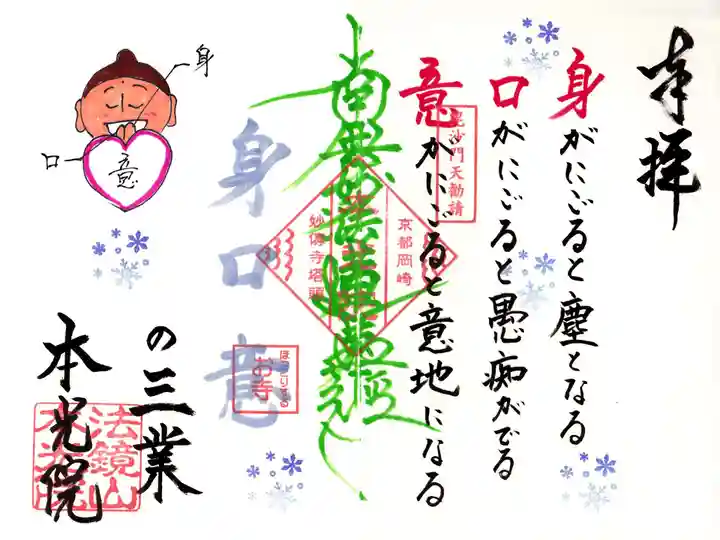 奉拝
身がにごると塵となる
口がにごると愚痴がでる
意がにごると意地になる
毘沙門天勧請
京都岡崎
南無妙法蓮華経
妙傳寺塔頭
身口意
ほっこりする
お寺
の三業
本光院
法鏡山
本光院
身
口
意